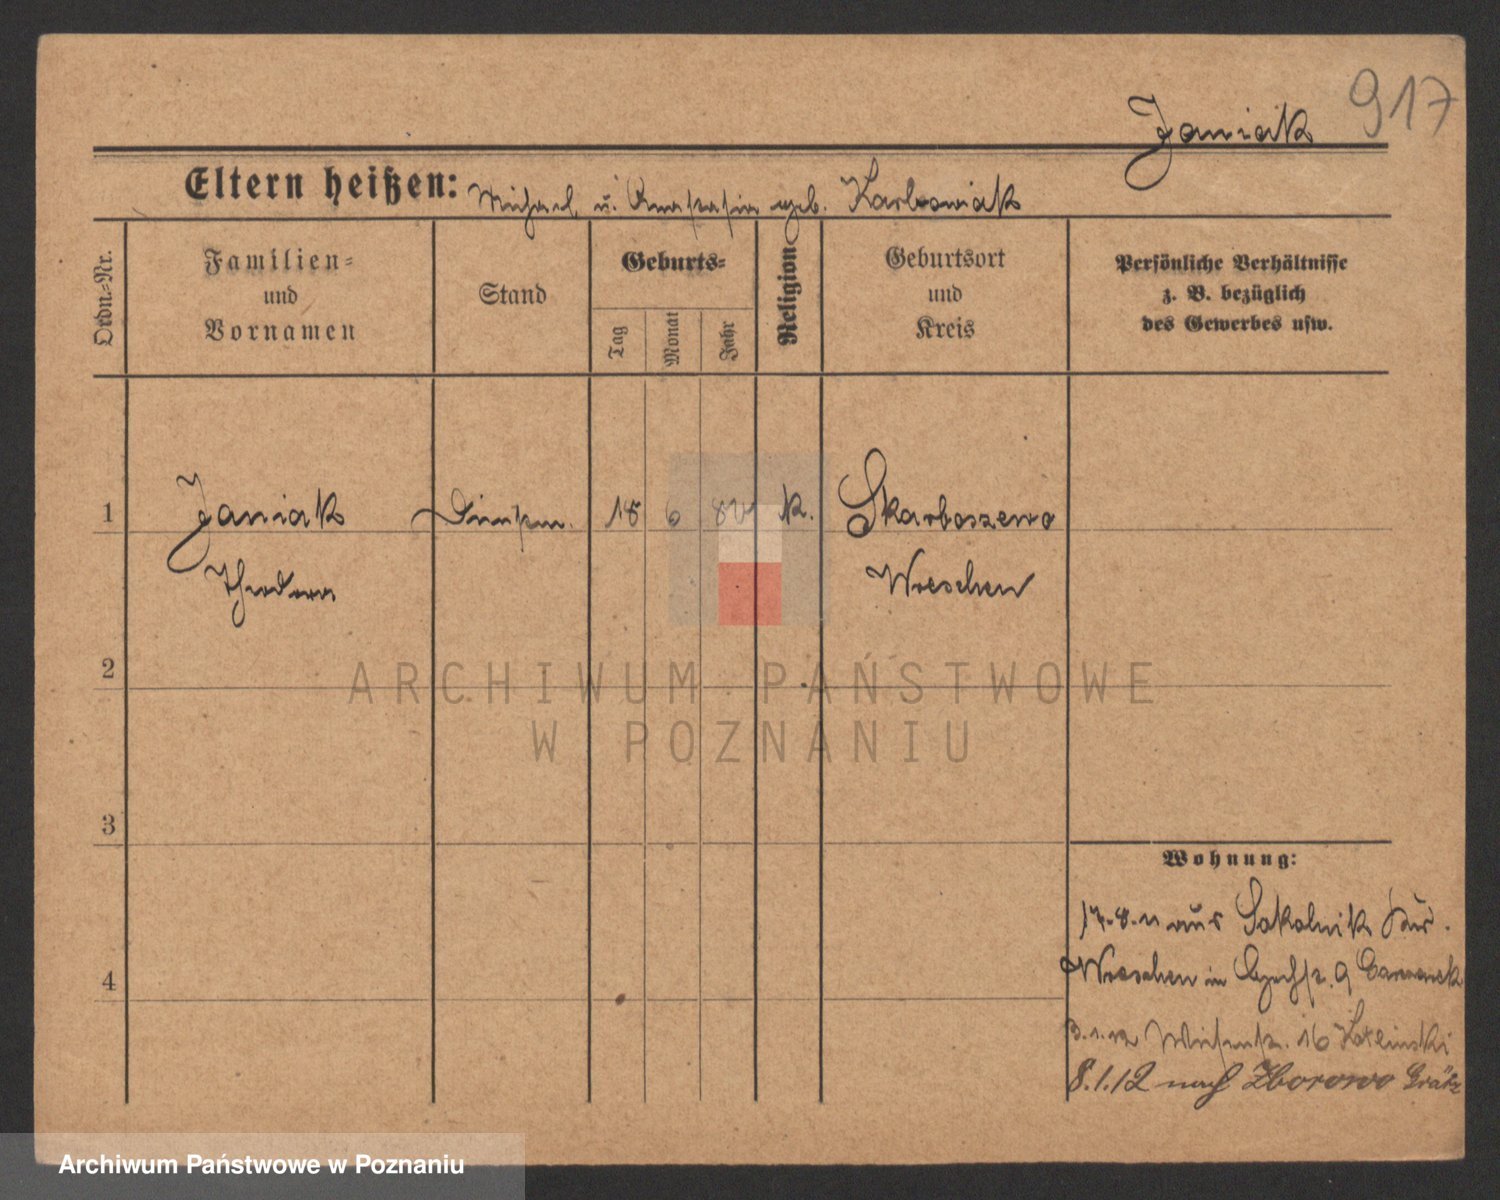 917
Janiak
Eltern heißen: Michael u. Anastasia geb. Karbowiak
Ordn.-Nr.
Familien-
und
Vornamen
Stand
Geburts-
Tag
Monat
Jahr
Religion
Geburtsort
und
Kreis
Persönliche Verhältnisse
z. B. bezüglich
des Gewerbes usw.
1
Janiak
18 6
K.
Skarboszewo
Wreschen
2
ARCHIWUM PAŃSTWOWE
W POZNANIU
3
Wohnung:
17.8.11 aus Sokolnik
Wreschen in
4
3.1.12 16
8.1.12 nach Zborowo Grätz
Archiwum Państwowe w Poznaniu